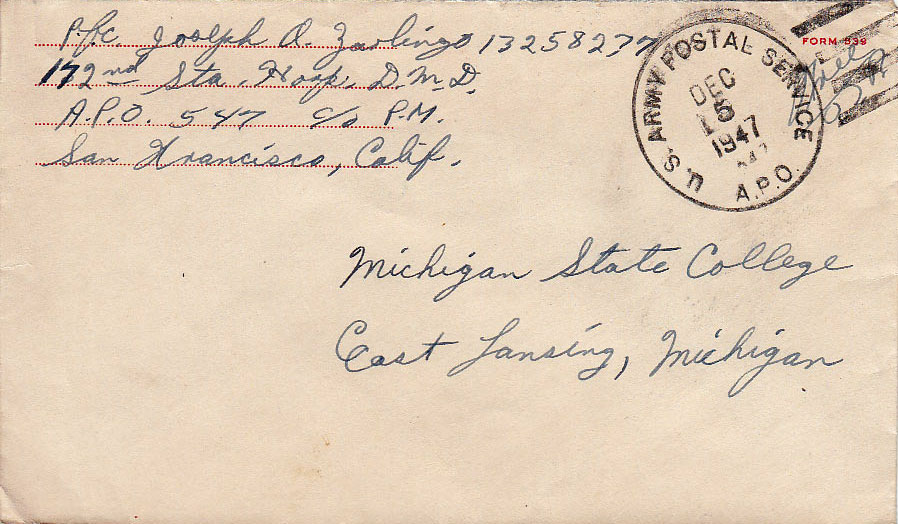 Pfc. Joseph A. Zarlingo 13258237
172nd Sta. Hosp. D.M.D.
A.P.O. 547 c/o P.M.
San Francisco, Calif.
U.S. ARMY POSTAL SERVICE
DEC
15
1947
A.P.O.
FORM 539
Free
Michigan State College
East Lansing, Michigan